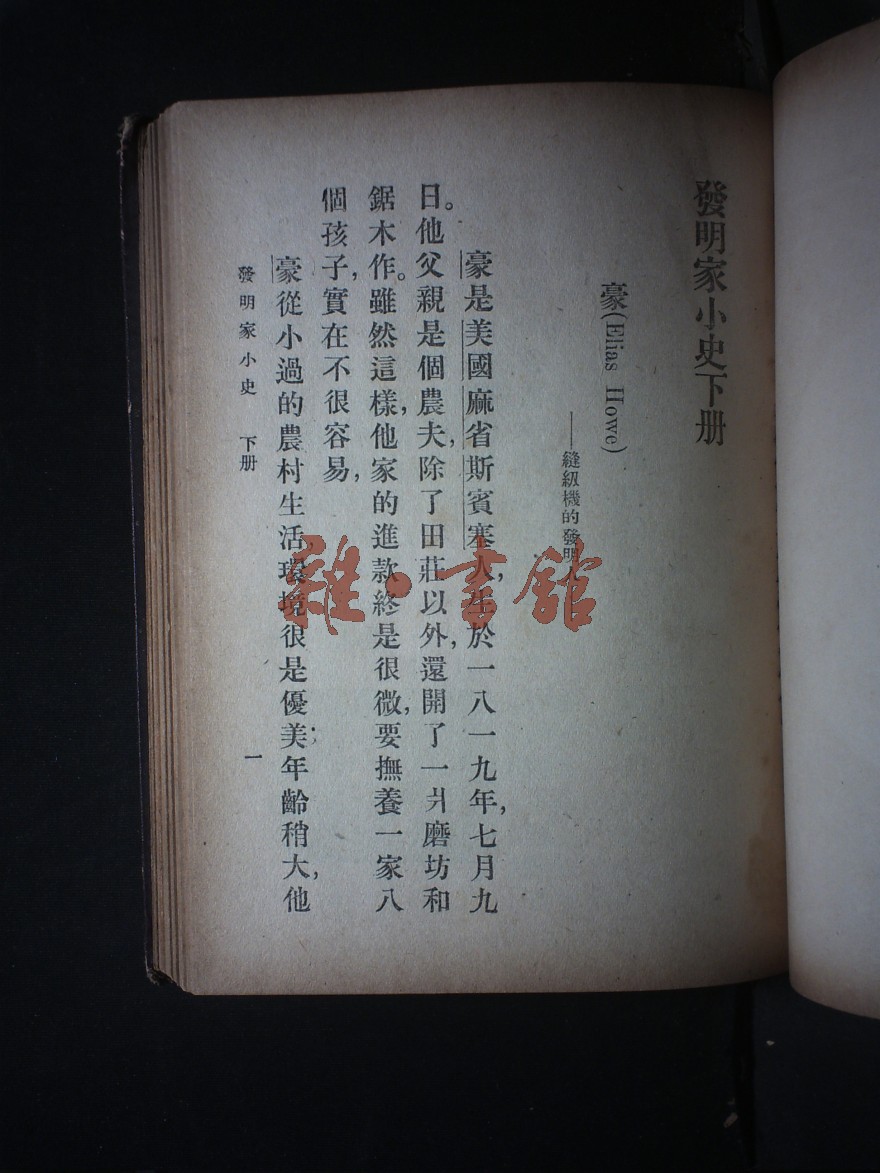 發明家小史下册
豪(Elias Howe)
——縫級機的發明人
豪是美國麻省斯賓塞人,生於一八一九年,七月九
日。他父親是個農夫,除了田莊以外,還開了一爿磨坊和
鋸木作。雖然這樣,他家的進款終是很微,要撫養一家八
個孩子,實在不很容易,
豪從小過的農村生活,環境很是優美;年齡稍大,他
發明家小史 下册
一
雜·書館